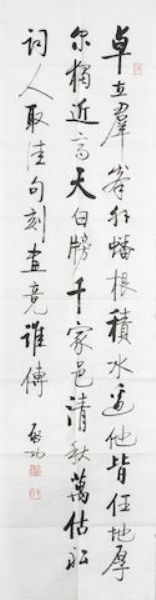 卓立羣峯外蟠根積水邊他皆任地厚
尔獨近高天白牓千家邑清秋萬估船
詞人取佳句刻畫竟誰傳 啟功